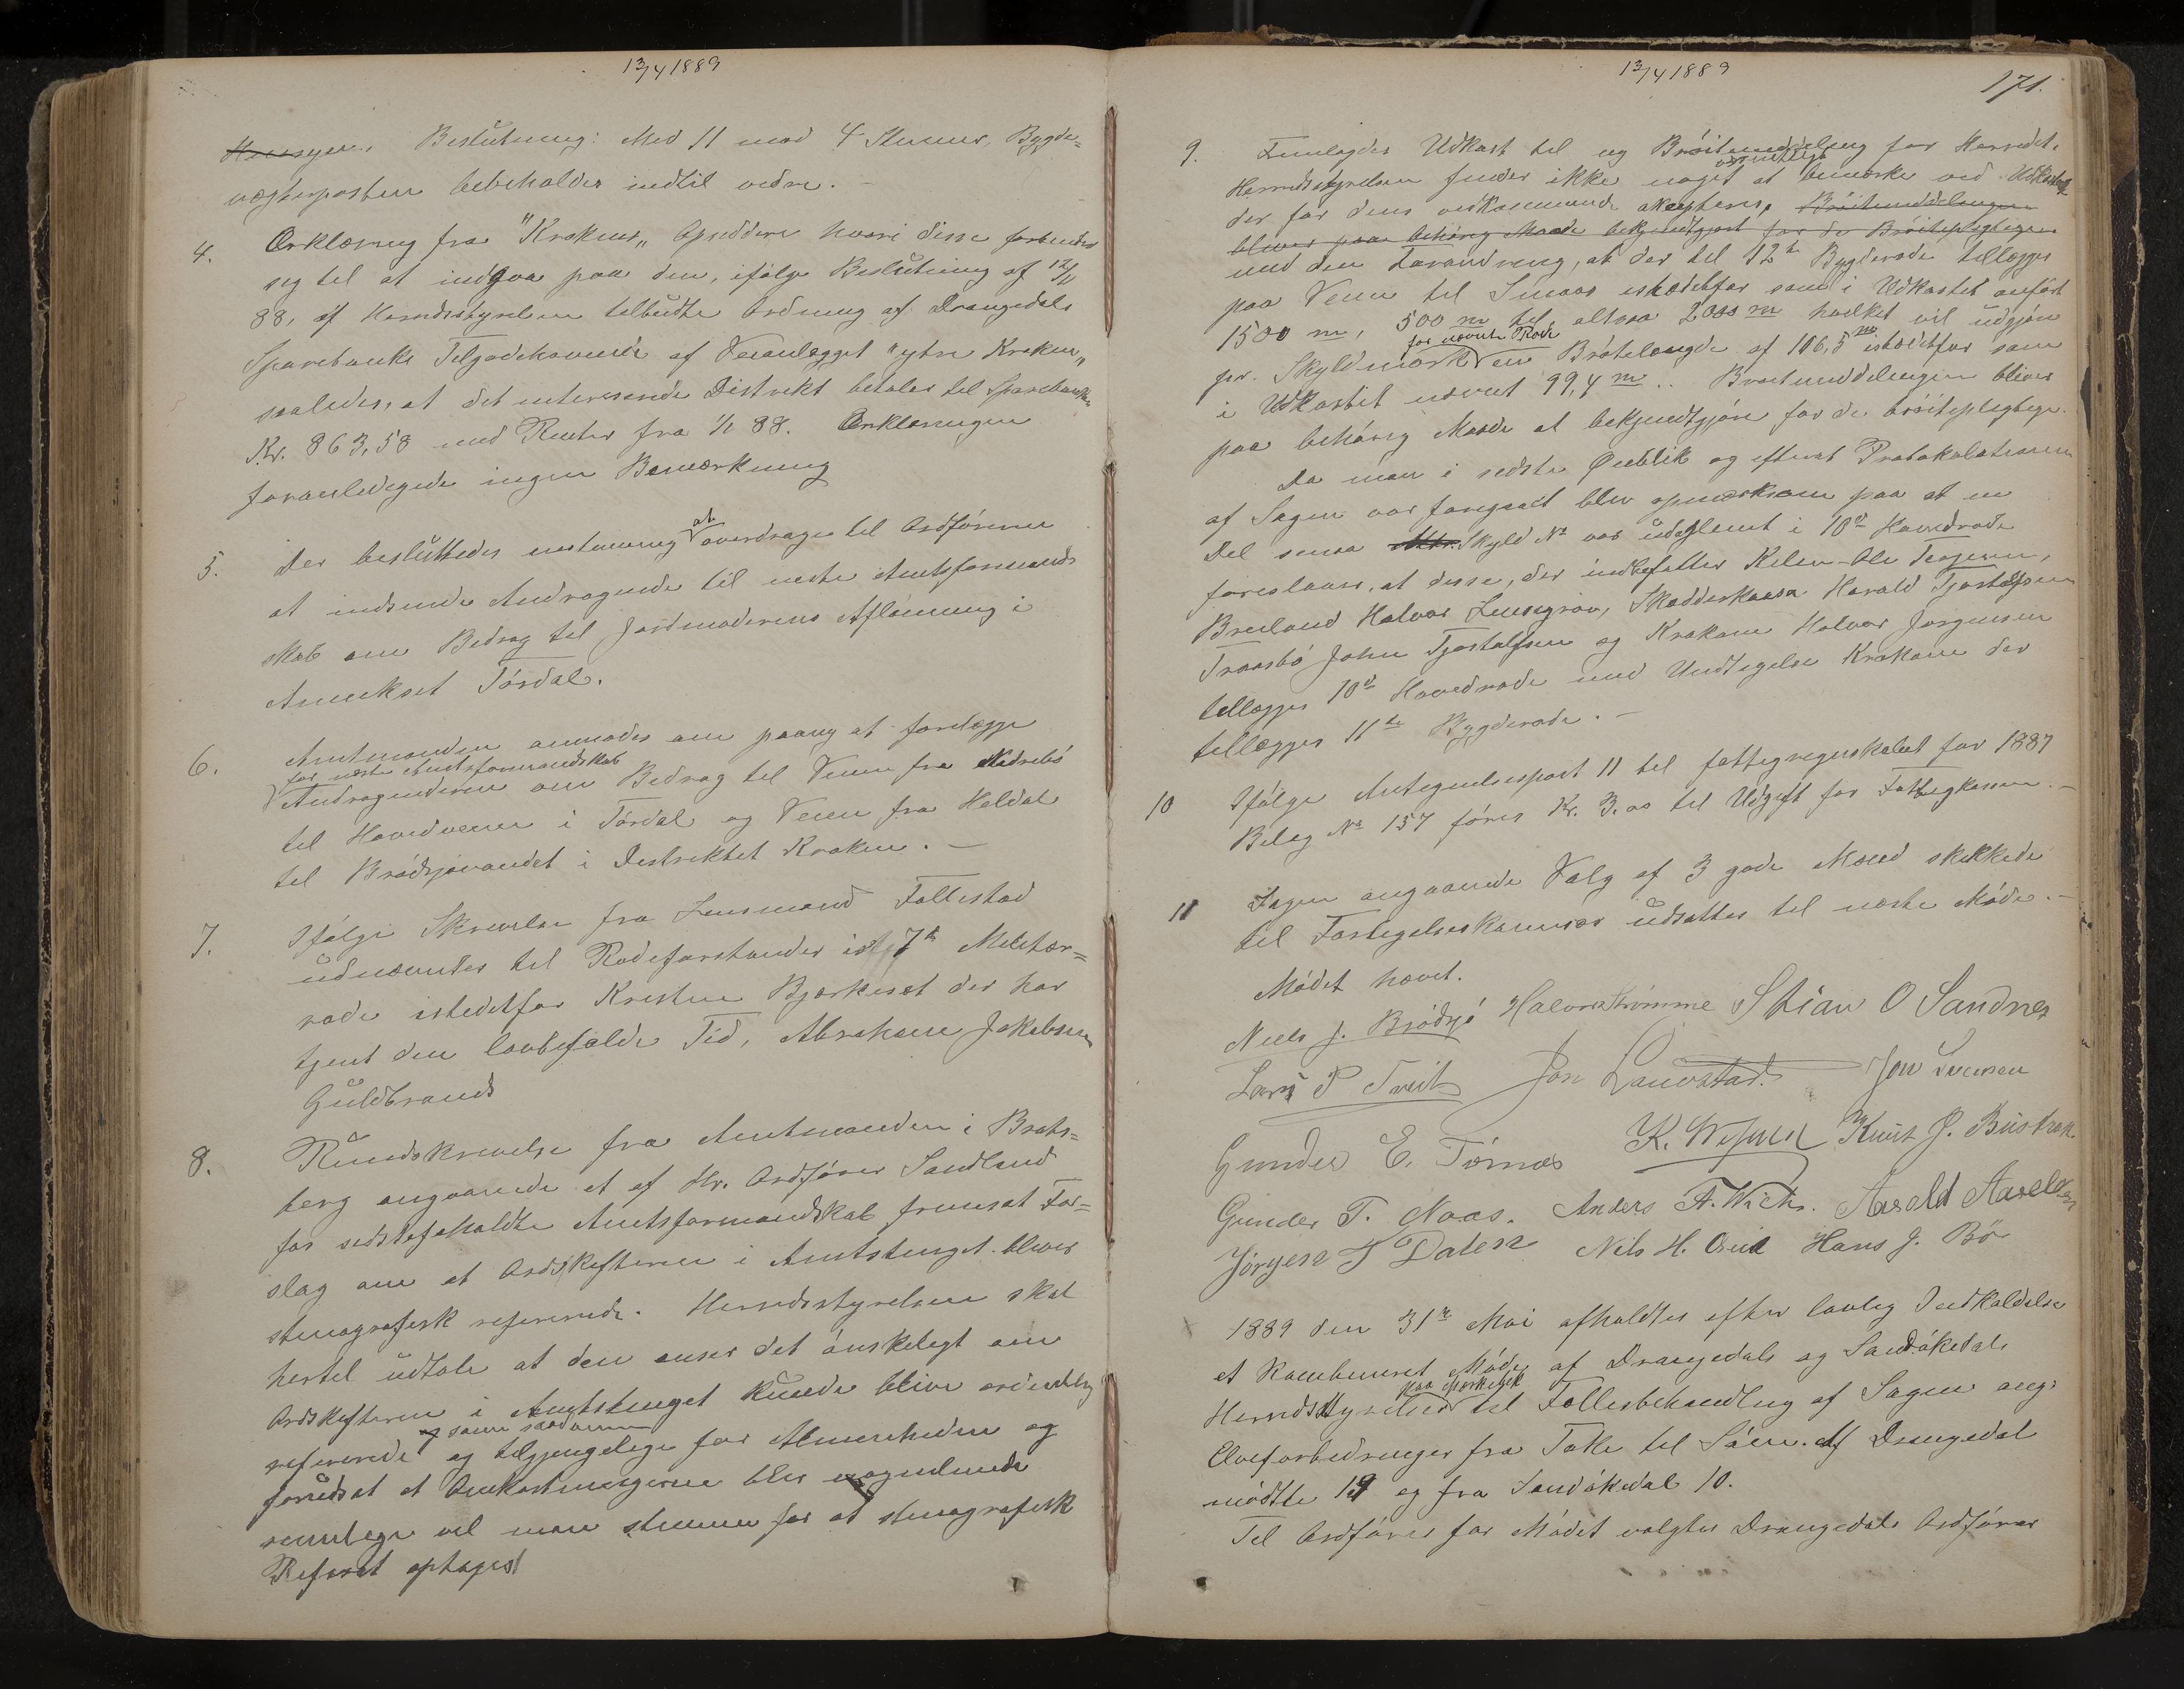 13/4 1889
Beslutning: Med 11 mod 4 Stemmer, Bygde=
vægterposten bebeholdes indtil videre. —
4. Erklæring fra "Krakens" Opsiddere hvori disse forbinder
sig til at indgaa paa den, ifølge Beslutning af 12/11
88, af Herredsstyrelsen tilbudte Ordning af Drangedals
Sparebanks Tilgodehavende af Veianlægget "ytre Kraken"
saaledes, at det interesserede Distrikt betaler til Sparebanken
Kr. 863,58 med Renter fra 1/1 88. Erklæringen
foranledigede ingen Bemærkning
5. Der besluttedes enstemmig at overdrage til Ordføreren
at indsende Andragende til neste Amtsformand=
skab om Bidrag til Jordmoderens Aflønning i
Annekset Tørdal.
6. Amtmanden anmodes om paany at forelægge
for neste Amtsformandskab
Andragenderne om Bidrag til Veien fra Nedrebø
til Hovedveien i Tørdal og Veien fra Haldal
til Brødsjøvandet i Distriktet Kraken. —
7. Ifølge Skrivelse fra Lensmand Tollestad
udnævntes til Rodeforstander i 7de Militær=
rode istedetfor Kristen Bjerkeset der har
tjent den lovbefalde Tid, Abraham Jakobsen
Guldbrands
8. Rundskrivelse fra Amtmanden i Brats=
berg angaaende et af Hr. Ordfører Sandland
for sidstafholdte Amtsformandskab fremsat For=
slag om at Ordskifterne i Amtstinget bliver
stenografisk refererede. Herredsstyrelsen skal
hertil udtale at den anser det ønskeligt om
Ordskifterne i Amtstinget kunde blive ordentlig
refererede og som saadanne og tilgjengelige for Almenheden og
forudsat at Omkostningerne blir nogenlunde
rimelige vil man stemme for at stenografisk
Referat optages
13/4 1889
171.
9. Fremlagdes Udkast til ny Brøiteinddeling for Herredet.
Herredsstyrelsen finder ikke noget væsentligt at bemærke ved Udkastet
der for dens vedkommende akcepteres, Brøiteinddelingen
bliver paa behørig Maade bekjendtgjort for de Brøitepligtige
med den Forandring, at der til 12te Bygderode tillægges
paa Veien til Smaas istedetfor som i Udkastet anført
1500 m, 500 m til, altsaa 2000 m hvilket vil udgjøre
pr. Skyldmark for nævnte Rode en Brøitelængde af 106,5 m istedetfor som
i Udkastet nævnt 99,4 m. Brøiteinddelingen bliver
paa behørig Maade at bekjendtgjøre for de brøitepligtige.
Da man i sidste Øieblik og efterat Protokolationen
af Sagen var foregaaet blev opmærksom paa at en
Del smaa Skyld No var udeglemt i 10de Hovedrode
foreslaaes, at disse, der indbefatter Kilen-Ole Tegeren,
Breiland Halvor Lensegrav, Skodderkaasa Harald Tjostolfsen
Traasbø John Tjostolfsen og Krakane Halvor Jørgensen
tillægges 10de Hovedrode med Undtagelse Krakane der
tillægges 11te Bygderode. —
10 Ifølge Antegnelsespost 11 til fattigregnskabet for 1887
Bilag No 157 føres Kr. 3.00 til Udgift for Fattigkassen. —
11 Sagen angaaende Valg af 3 gode Mænd skikkede
til Forligelseskommisær udsattes til neste Møde. —
Mødet hævet.
Niels J. Brødsjø Halvor Strømme Stian O Sandnes
Lars P Tveit Jon Lauvstad. Jon Svensen
Gunder E. Tørnæs K. Wefald Knut J. Bustrak.
Gunder T. Naas. Anders A. Vichs. Aasold Aarolden
Jörgen T Dalen Nils H. Eeik Hans J. Bö
1889 den 31te Mai afholdtes efter lovlig Indkaldelse
et kombineret Møde af Drangedals og Sandøkedals
Herredsstyrelser paa Merkebæk til Fællesbehandling af Sagen ang.
Elveforbedringer fra Tokke til Søen. Af Drangedal
mødtte 19 og fra Sandøkedal 10.
Til Ordfører for Mødet valgtes Drangedals Ordfører